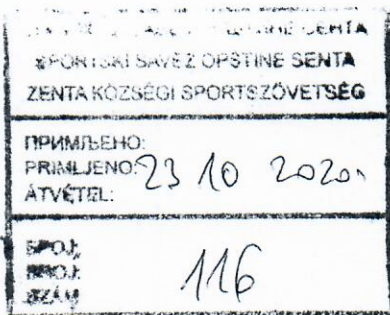 СЕНТА
SPORTSKI SAVEZ OPŠTINE SENTA
ZENTA KÖZSÉGI SPORTSZÖVETSÉG
ПРИМЉЕНО:
PRIMLJENO: 23 10 2020.
ÁTVÉTEL:
БРОЈ:
BROJ:
SZÁM
116